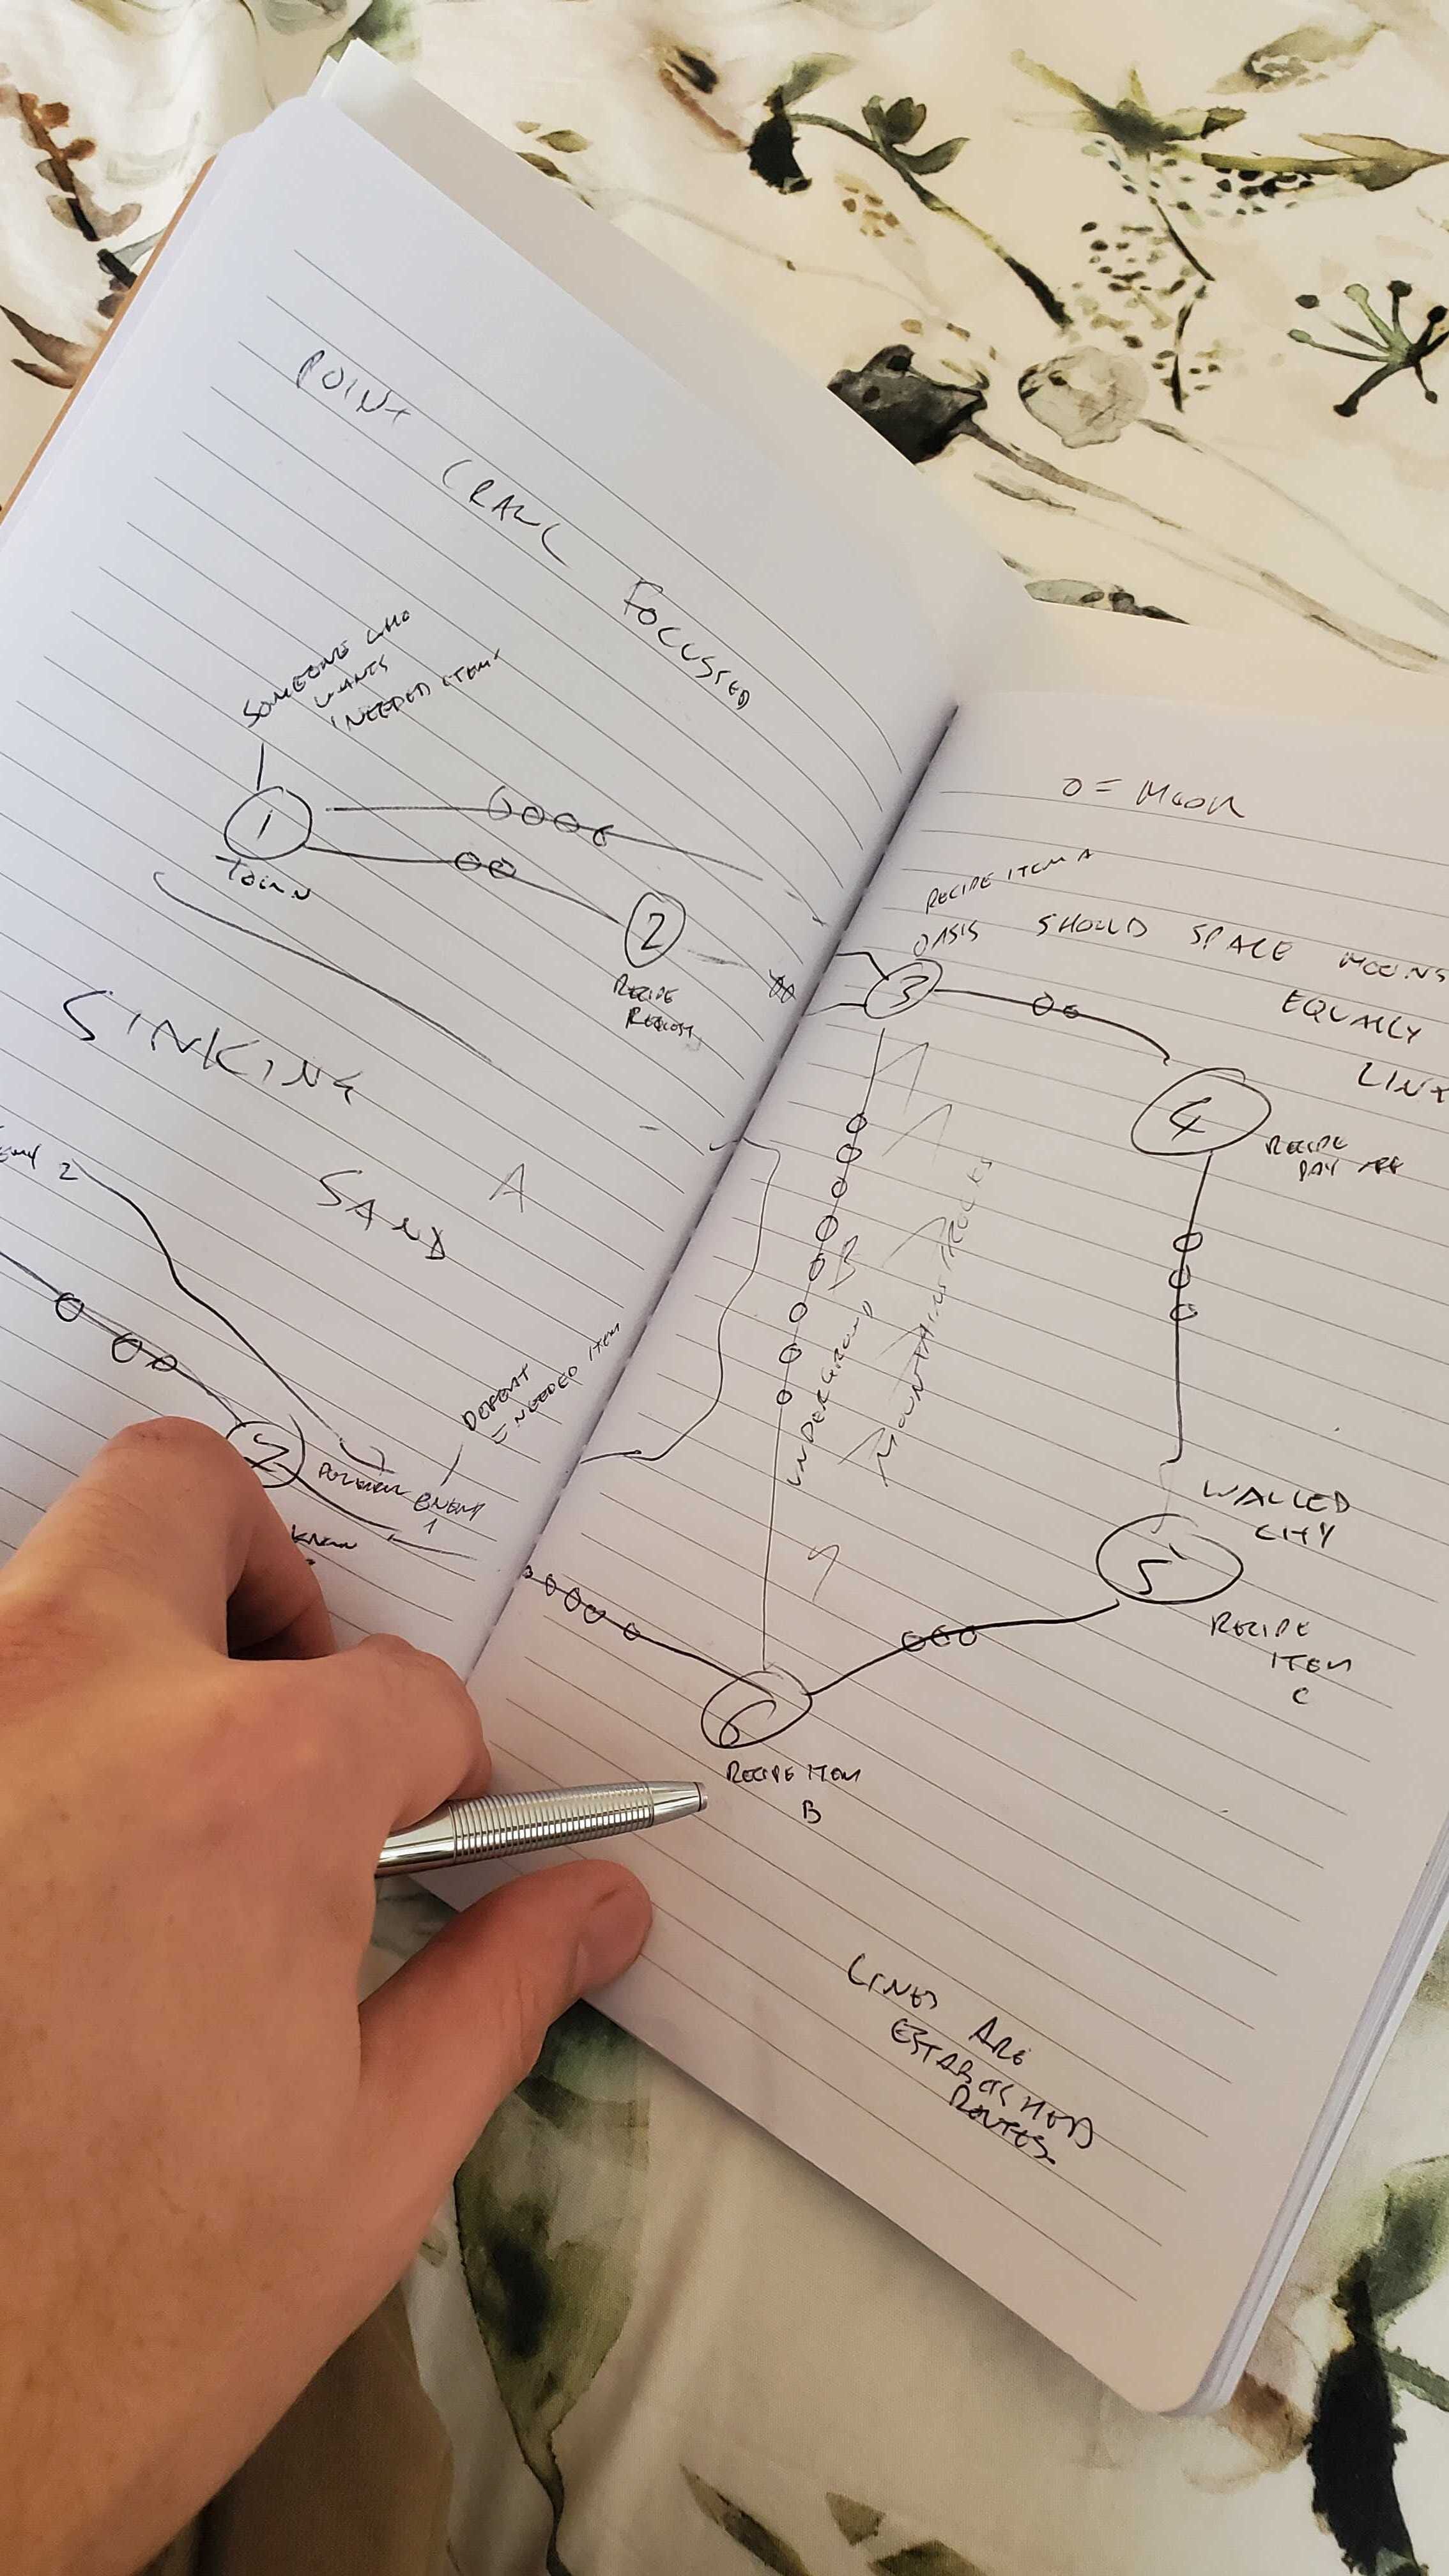 POINT CRAWL FOCUSSED
SOMEONE WHO
WANTS
'NEEDED ITEM'
1
TOWN
2
RECIPE
REQUEST
SINKING
SAND
A
2
7
ENEMY
1
DEFEAT
NEEDED ITEM
KNOW
O = MOON
RECIPE ITEM A
OASIS
SHOULD SPACE MOONS
EQUALLY
3
4
RECIPE
UNDERGROUND
B
MOUNTAINS
WALLED
CITY
5
RECIPE
ITEM
C
6
RECIPE ITEM
B
LINES ARE
ESTABLISHED
ROUTES.